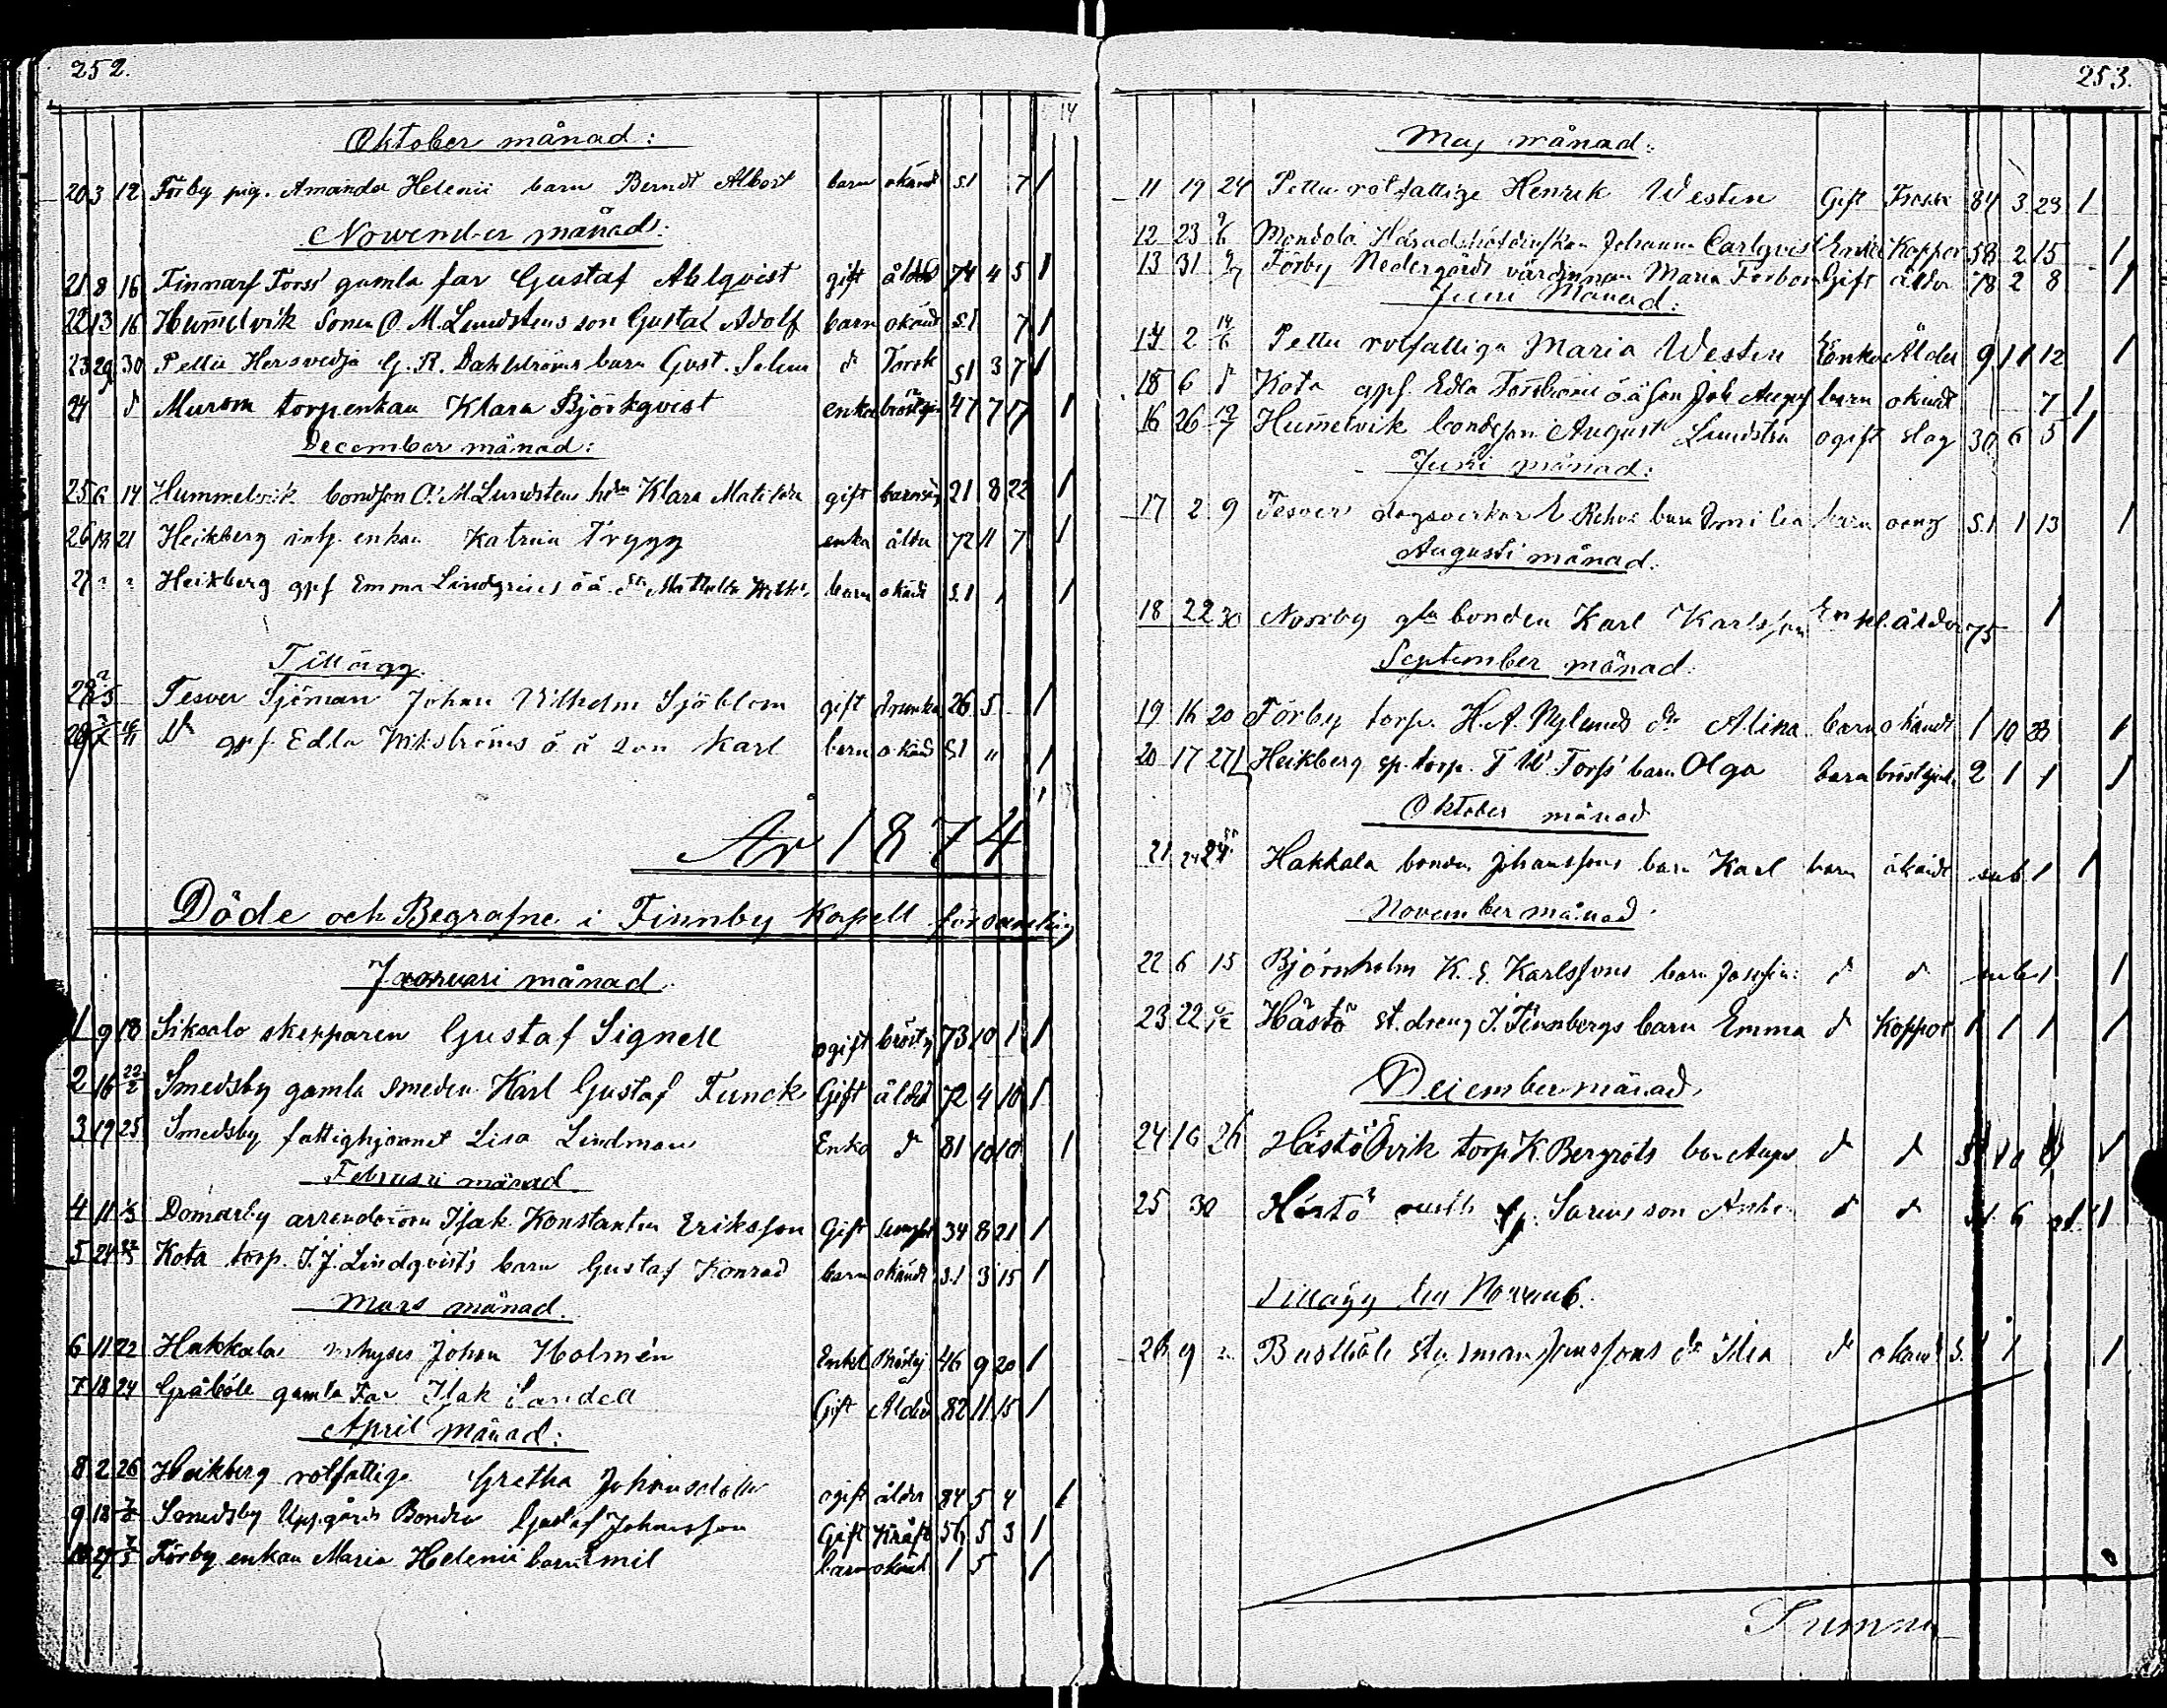 252.
Oktober månad:
20 3 12 Förby pig. Amanda Helenii barn Berndt Albert barn okändt s.1 7 1
November månad:
21 8 16 Finnarf Torss gamla far Gustaf Ahlqvist gift ålder 74 4 5 1
22 13 16 Hummelvik Sonen O. M. Lundstens son Gustaf Adolf barn okändt s.1 7 1
23 29 30 Pettu Hersvedja G. R. Dahlströms barn Gust. d Torsk s1 3 7 1
24 d torpenkan Klara Björkqvist enka bröstsj 47 7 17 1
December månad:
25 6 14 Hummelvik bondson O. M. Lundstens Klara Matilda gift barnsäng 21 8 22 1
26 21 Heikberg inh. enkan Katrina Trygg enka ålder 72 11 7 1
27 " " Heikberg gpf Emma Lindgrens o ä. barn okändt s.1 1
Tillägg
Tesver Sjöman Johan Vilhelm Sjöblom gift drunkn 26 5 1
gpf. Edla Wikströms o ä son Karl barn okändt s1 " 1
År 1874
Döde och Begrafne i Finnby Kapell församling
Januari månad
1 9 18 Siksalo skepparen Gustaf Signell ogift bröstsj 73 10 1 1
2 16 22/2 Smedsby gamla smeden Karl Gustaf Funck Gift ålder 72 4 10 1
3 19 25 Smedsby fattighjonet Lisa Lindman Enka d 81 10 10 1
Februari månad
4 11 1/3 Domarby arrendatorn Isak Konstantin Eriksson Gift 34 8 21 1
5 24 Kota torp. I. J. Lindqvists barn Gustaf Konrad barn okändt s.1 3 15 1
Mars månad.
6 11 22 Hakkala inhyses Johan Holmén Enkl Bröstsj 46 9 20 1
7 18 24 Gråböle gamla Far Isak Sandell Gift Ålder 82 11 15 1
April månad:
8 2 26 Heikberg rotfattige Gretha Johansdotter ogift ålder 84 5 4 1
9 18 Smedsby Uppgårds Bonden Gustaf Johansson Gift Kräft 56 5 3 1
10 27 Förby enkan Maria Helenii barn Emil barn okändt 1 5 1
253.
Maj månad:
11 19 24 Pettu rotfattige Henrik Westen Gift 84 3 23 1
12 23 9/6 Mondola Häradshöfdinskan Johanna Carlqvist Enka Koppor 58 2 15 1
13 31 Förby Nedergårds värdinnan Maria Forbom Gift ålder 78 2 8 1
Juni Månad:
14 2 14/6 Pettu rotfattiga Maria Westen Enka Ålder 9 11 12 1
15 6 d Kota gpf. Edla o ä son Joh Aug barn okändt 7 1
16 26 Hummelvik bondson August Lundsten ogift slag 30 6 5 1
Juli månad:
17 2 9 Tesver dagsverkar barn barn s.1 1 13 1
Augusti månad.
18 22 30 Norrby gla bonden Karl Karlsson Enkl. ålder 75 1
September månad.
19 16 20 Förby torp. H. A. Nylunds dr Alina barn okändt 1 10 23 1
20 17 27 Heikberg sp. torp. F W Forss' barn Olga barn bröstsjuk. 2 1 1 1
Oktober månad
21 24 Hakkala bonden Johanssons barn Karl barn okändt sub 1 1
November månad.
22 6 15 Björnholm K. E. Karlssons barn Josefin d d sub 1 1
23 22 Hästö st. dreng J. Finnbergs barn Emma d Koppor 1 1 1 1
December månad,
24 16 26 Hästö Övik torp K. Bergröts d d 1
25 30 Hästö son d d 6 1
Tillägg
26 9 Bustböle dr Ida d okändt s. 1 1
Summa